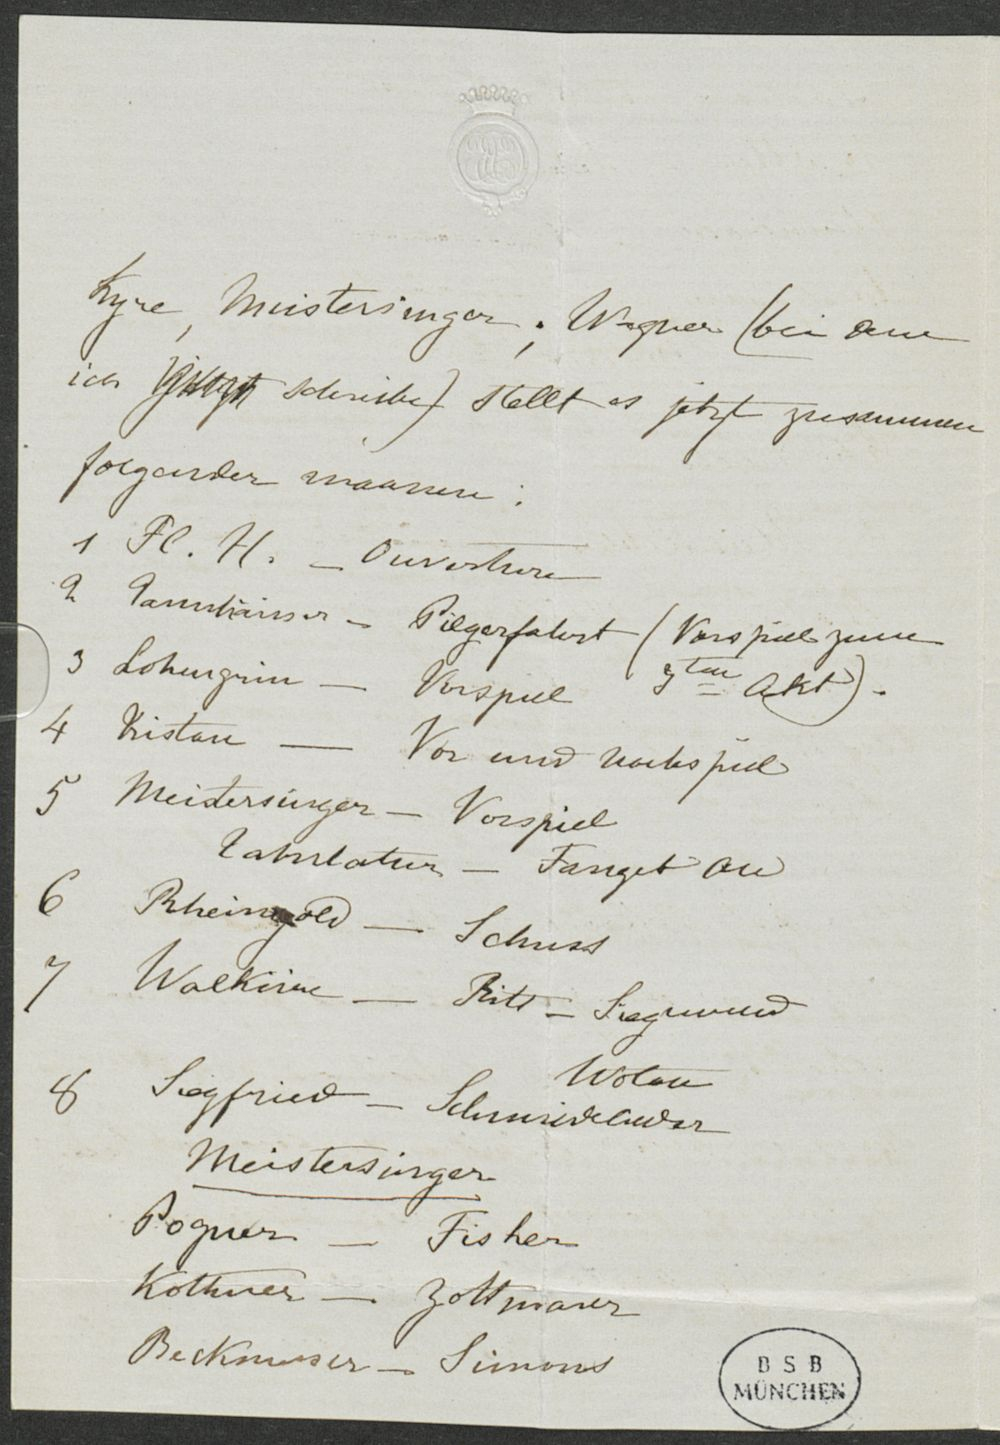 Kyrie, Meistersinger; Wagner (bei dem
ich schreibe) stellt es jetzt zusammen
folgender maassen:
1 Fl. H. — Ouverture
2 Tannhäuser — Pilgerfahrt (Vorspiel zum
3ten Akt).
3 Lohengrin — Vorspiel
4 Tristan — Vor und Nachspiel
5 Meistersinger — Vorspiel
Tabulatur — Fanget an
6 Rheingold — Schuss
7 Walküre — Ritt — Siegmund
Wotan
8 Siegfried — Schmiedelieder
Meistersinger
Pogner — Fisher
Kothner — Zottmaner
Beckmesser — Simons
BSB
MÜNCHEN